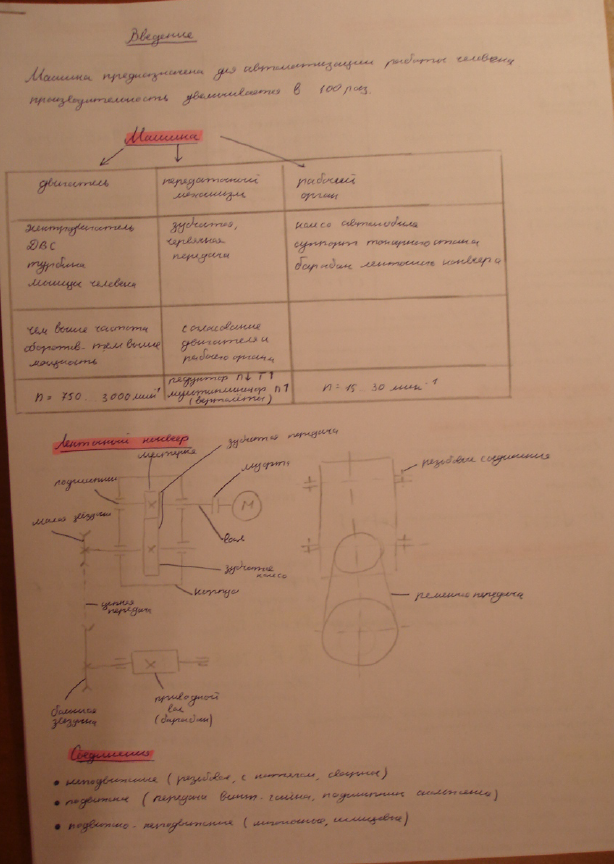 Введение
Машина предназначена для автоматизации работы человека
производительность увеличивается в 100 раз.
Машина
двигатель
передаточный
механизм
рабочий
орган
электродвигатель
ДВС
турбина
мышцы человека
зубчатая,
червячная
передача
колесо автомобиля
суппорт токарного станка
барабан ленточного конвейера
чем выше частота
оборотов - тем выше
мощность
согласование
двигателя и
рабочего органа
n = 750 .. 3000 мин⁻¹
редуктор n↓ T↑
мультипликатор n↑
(вертолёты)
n = 15 .. 30 мин⁻¹
Ленточный конвейер
зубчатая передача
шестерня
муфта
подшипник
М
малая звёздочка
вал
зубчатое
колесо
корпус
цепная
передача
резьбовое соединение
ременная передача
большая
звёздочка
приводной
вал
(барабан)
Соединение
• неподвижные (резьбовая, с натягом, сварные)
• подвижные (передача винт-гайка, подшипник скольжения)
• подвижно-неподвижные (шпоночная, шлицевая)